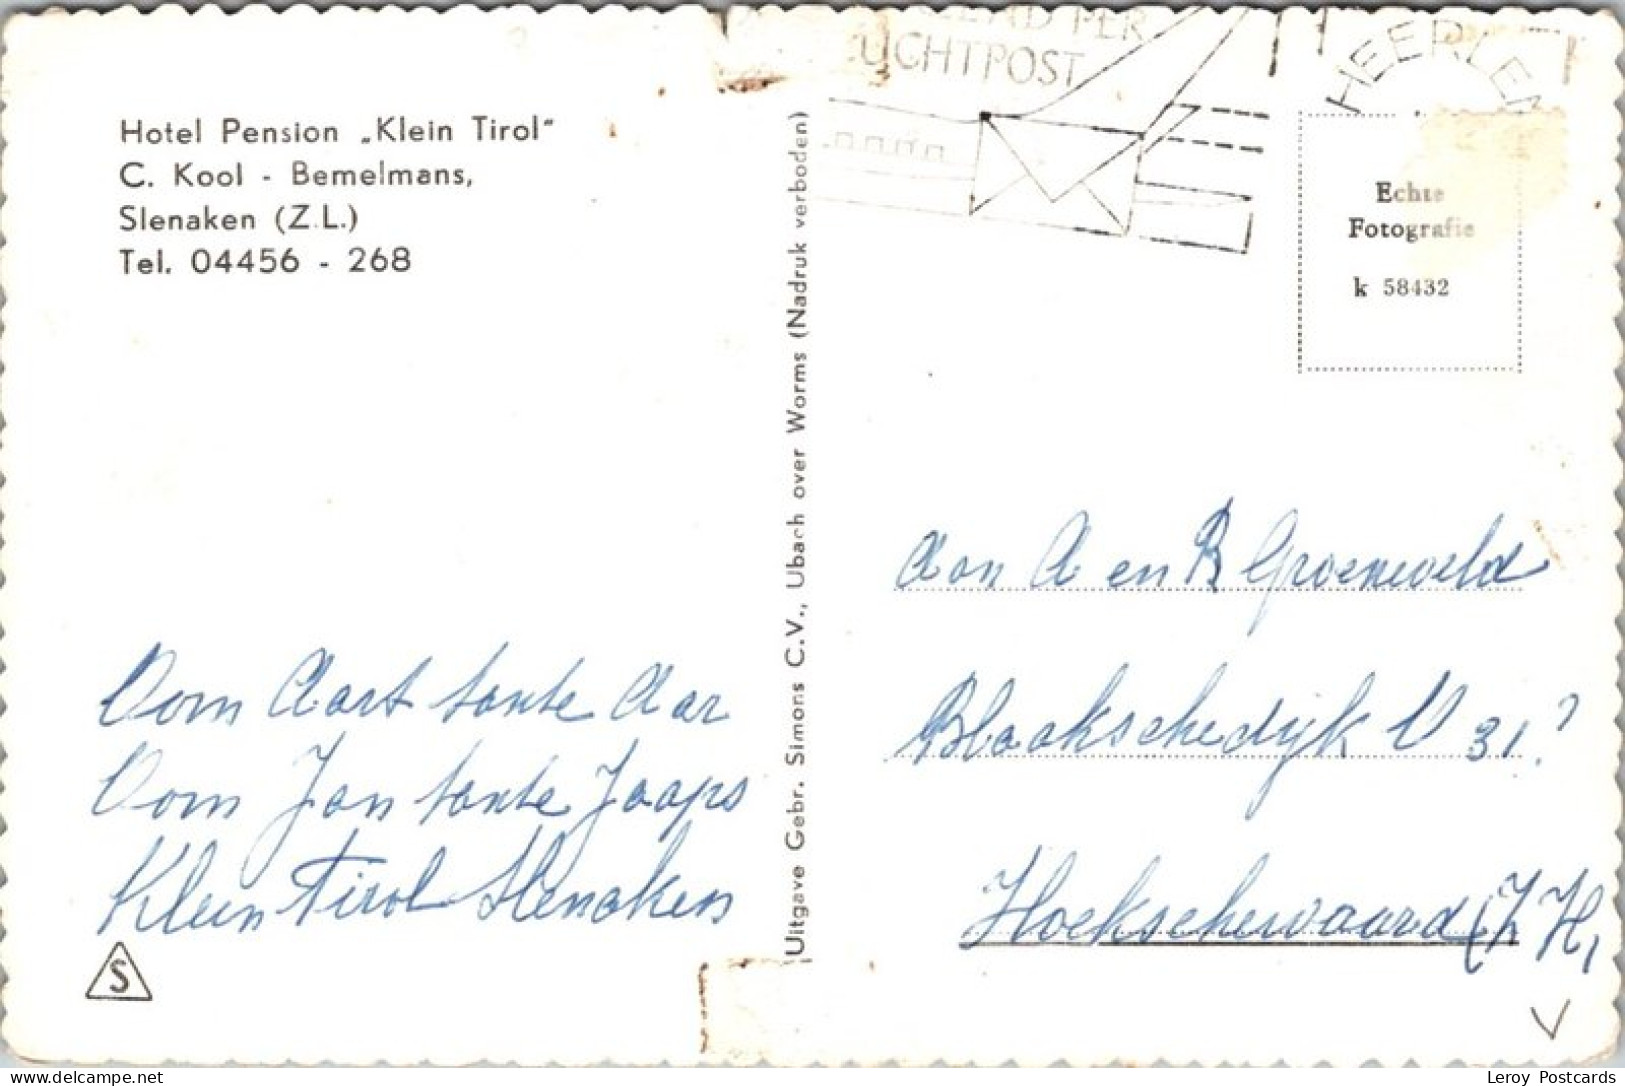 Hotel Pension „Klein Tirol"
C. Kool - Bemelmans,
Slenaken (Z.L.)
Tel. 04456 - 268
Oom Aart tante Aar
Oom Jan tante Jaaps
Klein Tirol Slenaken
S
Uitgave Gebr. Simons C.V., Ubach over Worms (Nadruk verboden)
PER
UCHTPOST
HEERLEN
Echte
Fotografie
k 58432
Aan A en B Groeneveld
Blaakschedijk V 31?
Hoekschewaard (Z H,
Leroy Postcards